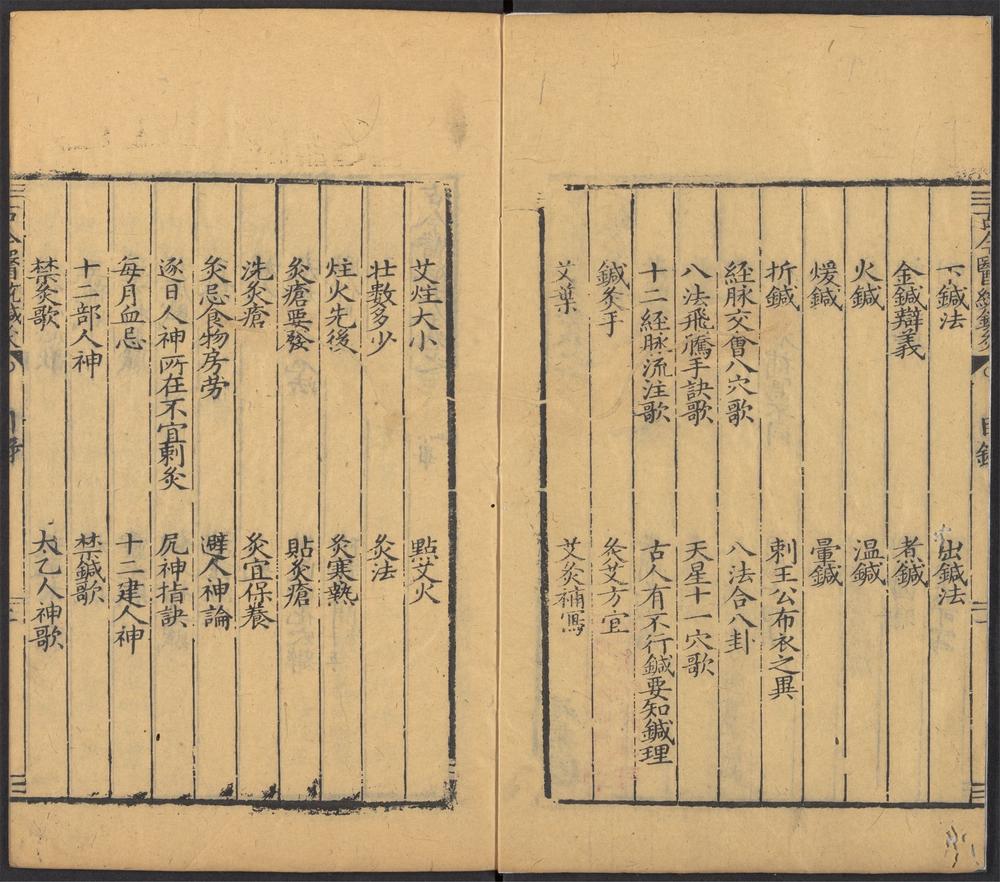 下鍼法 出鍼法
金鍼辯義 煮鍼
火鍼 温鍼
煖鍼 暈鍼
折鍼 刺王公布衣之異
經脉交會八穴歌 八法合八卦
八法飛騰手訣歌 天星十一穴歌
十二經脉流注歌 古人有不行鍼要知鍼理
鍼灸手 灸艾方宜
艾葉 艾灸補寫
艾炷大小 點艾火
壮數多少 灸法
炷火先後 灸寒熱
灸瘡要發 貼灸瘡
洗灸瘡 灸宜保養
灸忌食物房劳 避人神論
逐日人神所在不宜刺灸 尻神指訣
每月血忌 十二建人神
十二部人神 禁鍼歌
禁灸歌 太乙人神歌